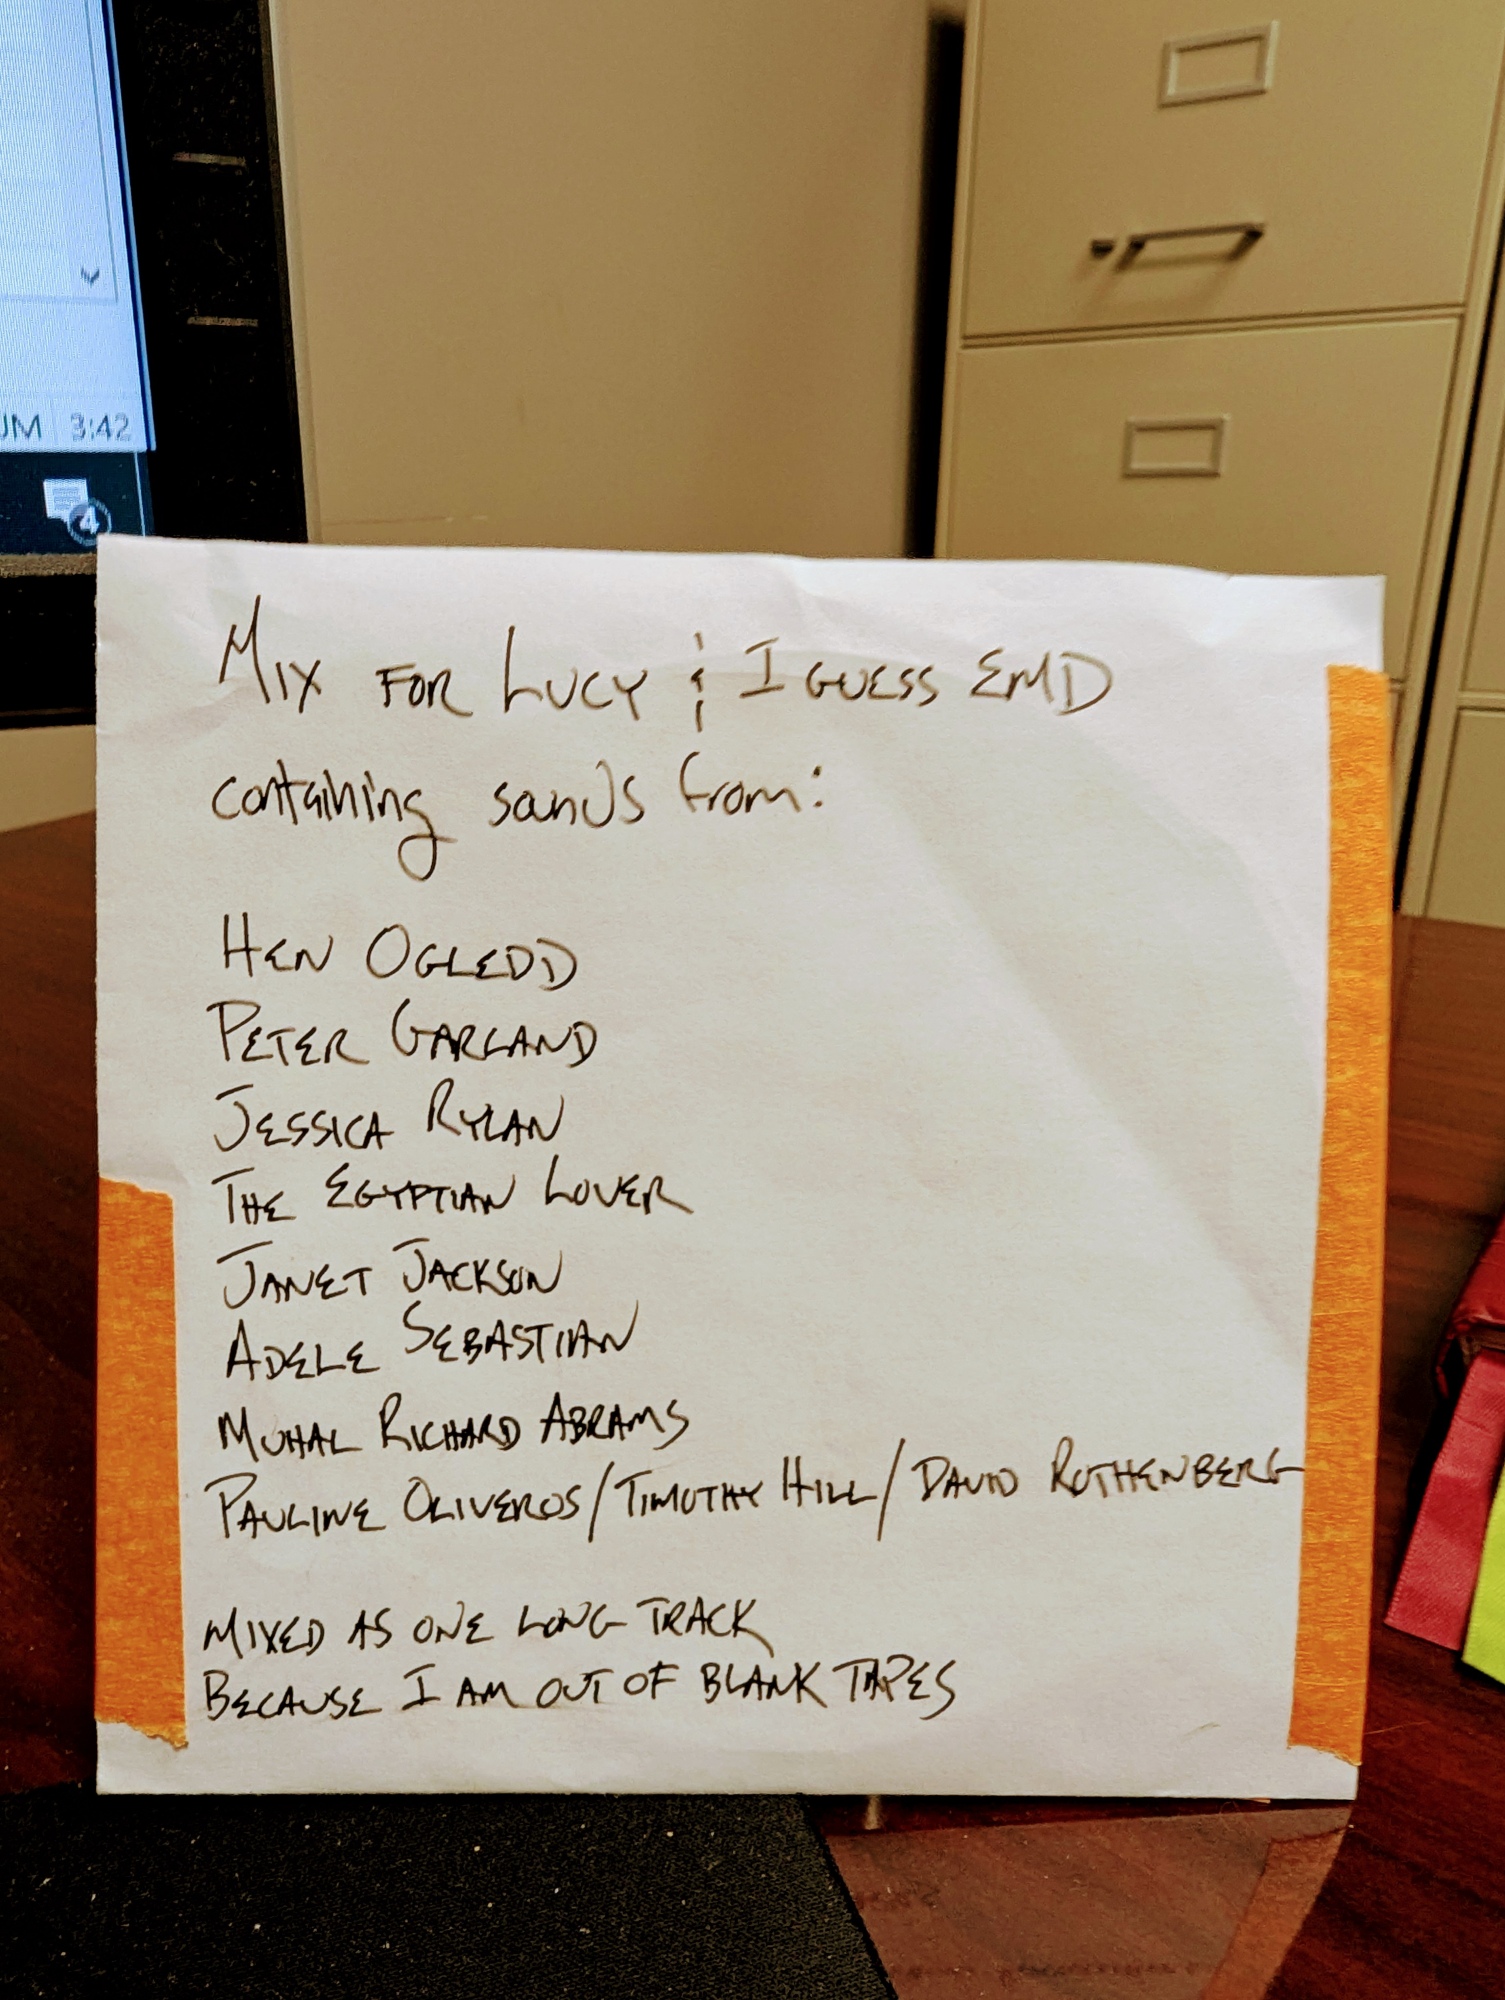 UM 3:42
4
MIX FOR LUCY & I GUESS EMD
containing sounds from:
HEN OGLEDD
PETER GARLAND
JESSICA RYLAN
THE EGYPTIAN LOVER
JANET JACKSON
ADELE SEBASTIAN
MUHAL RICHARD ABRAMS
PAULINE OLIVEROS/TIMOTHY HILL/DAVID ROTHENBERG
MIXED AS ONE LONG TRACK
BECAUSE I AM OUT OF BLANK TAPES